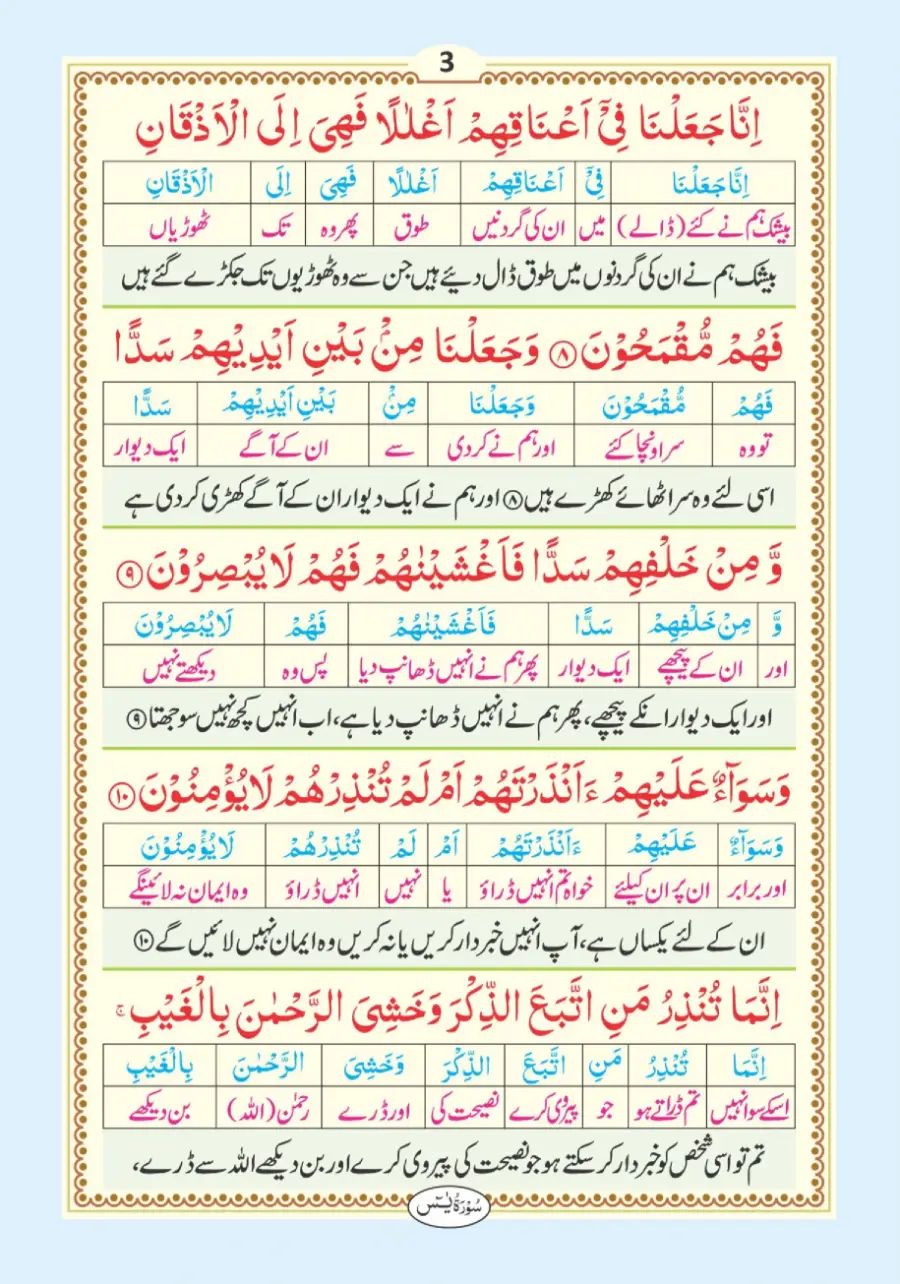 3
اِنَّا جَعَلْنَا فِيْۤ اَعْنَاقِهِمْ اَغْلٰلًا فَهِيَ اِلَى الْاَذْقَانِ
اِنَّا جَعَلْنَا فِيْۤ اَعْنَاقِهِمْ اَغْلٰلًا فَهِيَ اِلَى الْاَذْقَانِ
بیشک ہم نے کئے (ڈالے) میں ان کی گردنیں طوق پھر وہ تک ٹھوڑیاں
بیشک ہم نے ان کی گردنوں میں طوق ڈال دیئے ہیں جن سے وہ ٹھوڑیوں تک جکڑے گئے ہیں
فَهُمْ مُّقْمَحُوْنَ ۸ وَجَعَلْنَا مِنْۢ بَيْنِ اَيْدِيْهِمْ سَدًّا
فَهُمْ مُّقْمَحُوْنَ وَجَعَلْنَا مِنْۢ بَيْنِ اَيْدِيْهِمْ سَدًّا
تو وہ سر اونچا کئے اور ہم نے کر دی سے ان کے آگے ایک دیوار
اسی لئے وہ سر اٹھائے کھڑے ہیں ۸ اور ہم نے ایک دیوار ان کے آگے کھڑی کر دی ہے
وَّ مِنْ خَلْفِهِمْ سَدًّا فَاَغْشَيْنٰهُمْ فَهُمْ لَا يُبْصِرُوْنَ ۹
وَّ مِنْ خَلْفِهِمْ سَدًّا فَاَغْشَيْنٰهُمْ فَهُمْ لَا يُبْصِرُوْنَ
اور ان کے پیچھے ایک دیوار پھر ہم نے انہیں ڈھانپ دیا پس وہ دیکھتے نہیں
اور ایک دیوار انکے پیچھے، پھر ہم نے انہیں ڈھانپ دیا ہے، اب انہیں کچھ نہیں سوجھتا ۹
وَسَوَآءٌ عَلَيْهِمْ ءَاَنْذَرْتَهُمْ اَمْ لَمْ تُنْذِرْهُمْ لَا يُؤْمِنُوْنَ ۱۰
وَسَوَآءٌ عَلَيْهِمْ ءَاَنْذَرْتَهُمْ اَمْ لَمْ تُنْذِرْهُمْ لَا يُؤْمِنُوْنَ
اور برابر ان پر ان کیلئے خواہ تم انہیں ڈراؤ یا نہیں انہیں ڈراؤ وہ ایمان نہ لائینگے
ان کے لئے یکساں ہے، آپ انہیں خبردار کریں یا نہ کریں وہ ایمان نہیں لائیں گے ۱۰
اِنَّمَا تُنْذِرُ مَنِ اتَّبَعَ الذِّكْرَ وَخَشِيَ الرَّحْمٰنَ بِالْغَيْبِ ۚ
اِنَّمَا تُنْذِرُ مَنِ اتَّبَعَ الذِّكْرَ وَخَشِيَ الرَّحْمٰنَ بِالْغَيْبِ
اسکے سوا نہیں تم ڈراتے ہو جو پیروی کرے نصیحت کی اور ڈرے رحمٰن (اللہ) بن دیکھے
تم تو اسی شخص کو خبردار کر سکتے ہو جو نصیحت کی پیروی کرے اور بن دیکھے اللہ سے ڈرے،
سُوْرَةُ يٰسٓ